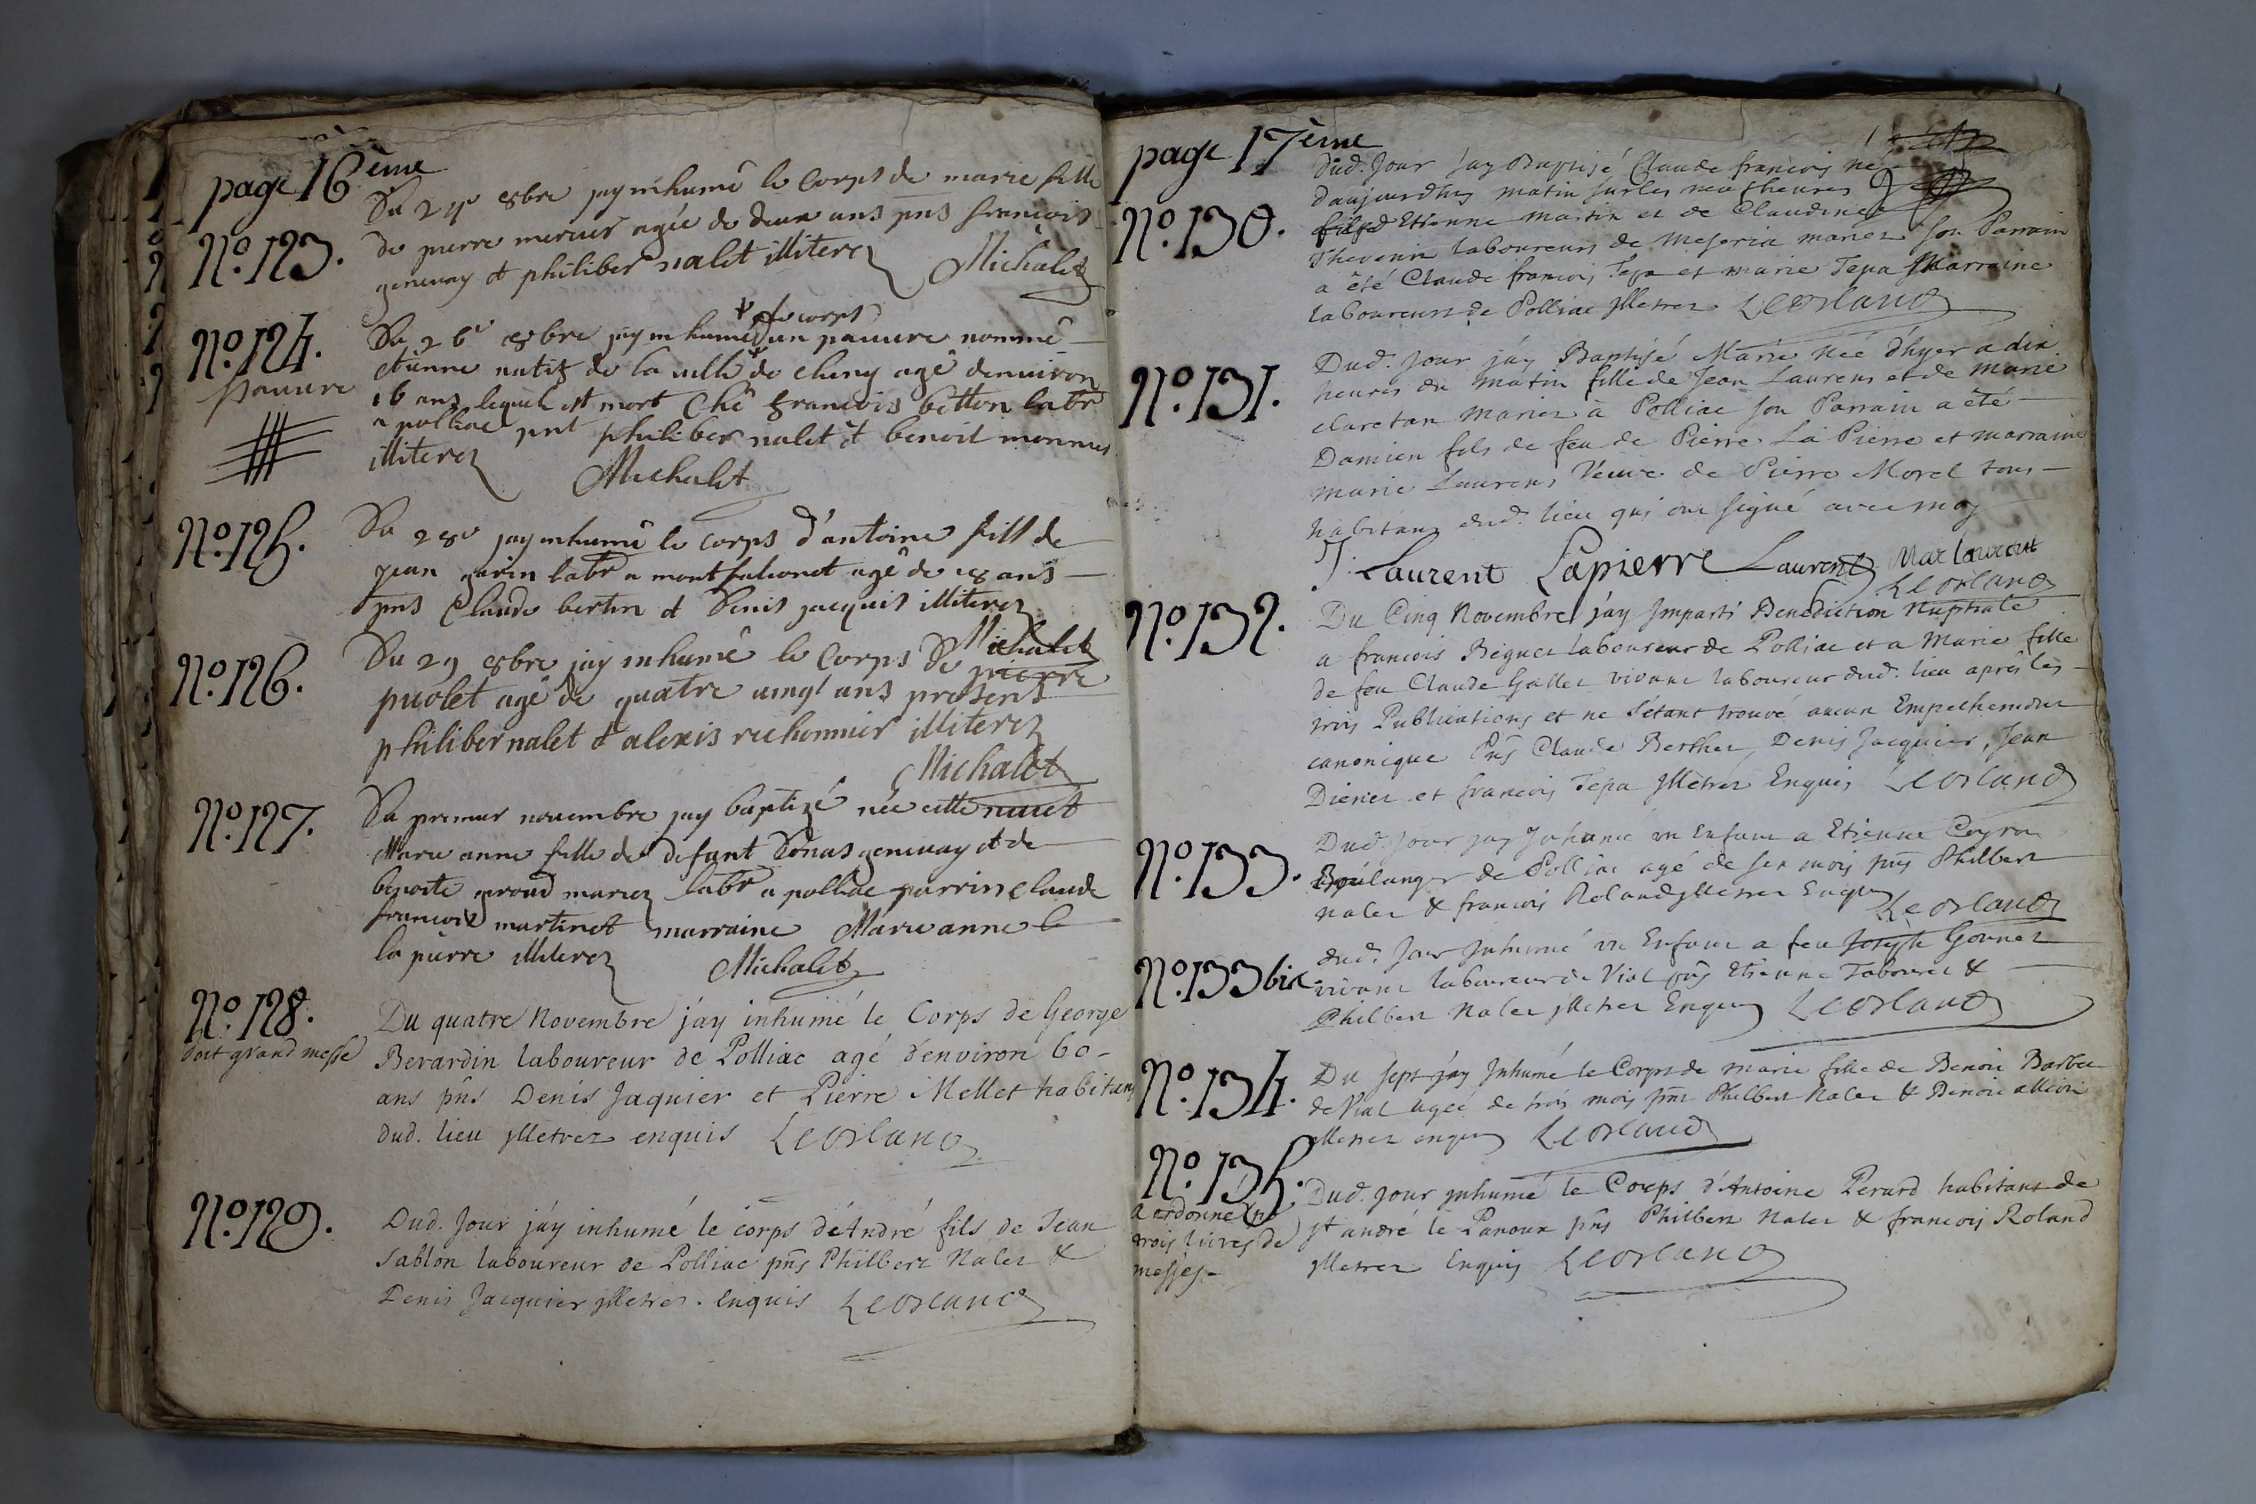 page 16ème
N°. 123.
Du 24e 8bre jay inhumé le Corps de marie fille
de pierre mercier agée de deux ans pns francois
genevay et philiber nalet illiterez Michalet
N°. 124.
pauvre
+ le corps
Du 26e 8bre jay inhumé + dun pauvre nommé
etienne natif de la ville de cluny agé denuiron
16 ans lequel est mort Ché francois betton labr
a polliac pnt philiber nalet et benoit monnier
illiterez Michalet
N°. 125.
Du 28e jay inhumé le corps d'antoine fill de
jean garin labr a montfalconet agé de 18 ans
pns Claude bertin et Denis jacquis illiterez
Michalet
N°. 126.
Du 29 8bre jay inhumé le Corps De pierre
puvlet agé de quatre vingt ans presens
philiber nalet et alexis richonnier illiterez
Michalet
N°. 127.
Du premier novembre jay baptizé née cette nuict
Marie anne fille de defunt Donas genevay et de
benoite giroud mariez labr a polliac parrin claude
francois martinet marraine Marie anne
la pierre illiterez Michalet
N°. 128.
doit grand messe
Du quatre Novembre j'ay inhumé le Corps de George
Berardin laboureur de Polliac agé d'environ 60
ans pns Denis Jaquier et Pierre Mellet habitans
dud. lieu jlletrez enquis Leorland
N°. 129.
Dud. Jour j'ay inhumé le corps d'André fils de Jean
Sablon laboureur de Polliac pns Philbert Nalet &
Denis Jacquier jlletrez. enquis Leorland
page 17ème
N°. 130.
Dud. Jour j'ay Baptisé Claude francois né
d'aujourdhuy matin sur les neuf heures
fils d'Etienne Martin et de Claudine
Thevenin laboureurs de Meseriat mariez son Parrain
a été Claude francois Tepa et marie Tepa Marraine
laboureurs de Polliac jlletrez Leorland
N°. 131.
Dud. Jour j'ay Baptisé Marie née d'hyer a dix
heures du matin fille de Jean Laurent et de Marie
claretan mariez à Polliac son Parrain a été
Damien fils de feu de Pierre La Pierre et marraine
marie Laurens Veuve de Pierre Morel tous
habitans dud. lieu qui ont signé avec moy
J. Laurent Lapierre Laurent Mar laurent
Leorland
N°. 132.
Du Cinq Novembre j'ay Imparti Benediction Nuptiale
a francois Béguet laboureur de Polliac et a Marie fille
de feu Claude Gallet vivant laboureur dud. lieu après les
trois Publications et ne s'étant trouvé aucun Empechement
canonique Pns Claude Berthet, Denis Jacquier, Jean
Dienet et francois Tepa jlletrez Enquis Leorland
N°. 133.
Dud. Jour jay Inhumé un Enfant a Etienne Coyron
Boulanger de Polliac agé de six mois pns Philbert
Nalet & francois Roland jlletrez Enquis Leorland
N°. 133 bis
dud. Jour Inhumé un Enfant a feu Joseph Gonnet
vivant laboureur de Vial pns Etienne Tabouret &
Philbert Nalet jlletrez Enquis Leorland
N°. 134.
Du sept j'ay Inhumé le Corps de marie fille de Benoit Barbet
de Vial agée de trois mois pns Philbert Nalet & Benoit
jlletrez enquis Leorland
N°. 135.
a ordonné pr
trois livres de
messes.
Dud. jour inhumé le Corps d'Antoine Perard habitant de
St andré le Panoux pns Philbert Nalet & francois Roland
jlletrez Enquis Leorland